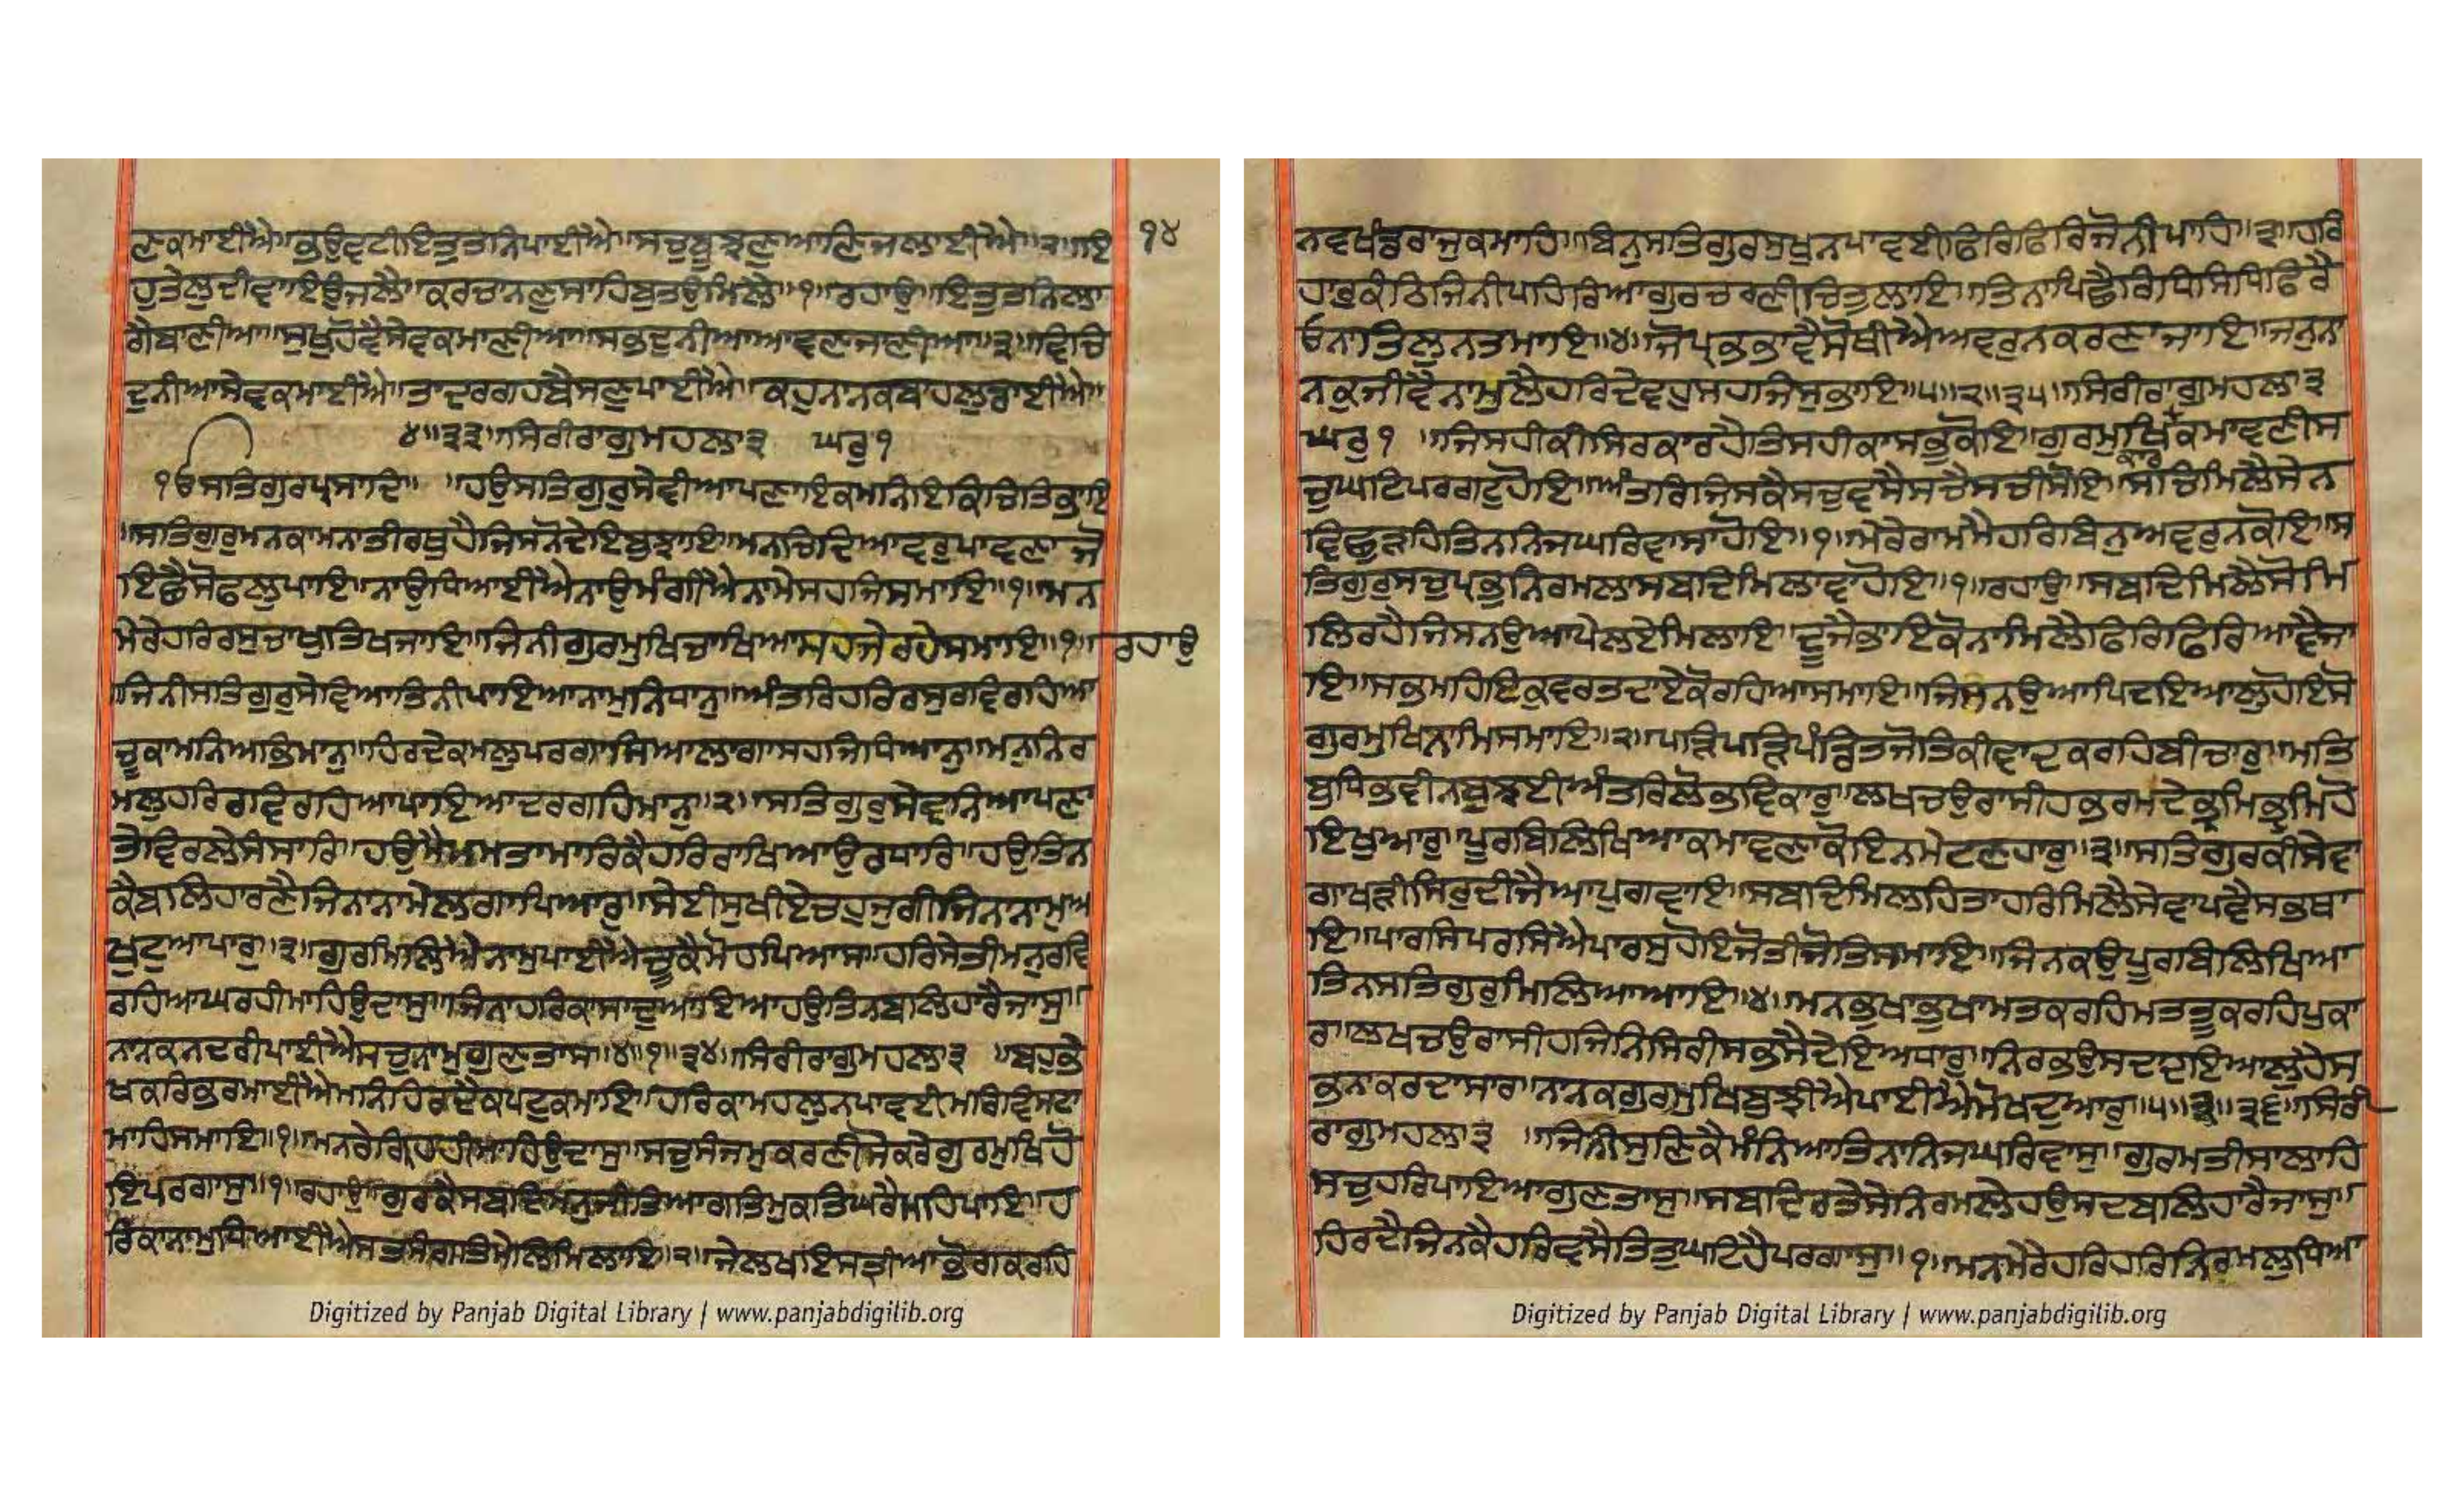 ਣਕਮਾਈਐ॥ਭਉਵਟੀਇਤੁਤਨਿਪਾਈਐ॥ਸਚੁਬੂਝਣੁਆਣਿਜਲਾਈਐ॥੨॥ਇ ੧੪
ਹੁਤੇਲੁਦੀਵਾਇਉਜਲੈ॥ਕਰਚਾਨਣੁਸਾਹਿਬੁਤਉਮਿਲੈ॥੧॥ਰਹਾਉ॥ਇਤੁਤਨਿਲਾ
ਗੈਬਾਣੀਆ॥ਸੁਖੁਹੋਵੈਸੇਵਕਮਾਣੀਆ॥ਸਭਦੁਨੀਆਆਵਣਜਾਣੀਆ॥੩॥ਵਿਚਿ
ਦੁਨੀਆਸੇਵਕਮਾਈਐ॥ਤਾਦਰਗਹਬੈਸਣੁਪਾਈਐ॥ਕਹੁਨਾਨਕਬਾਹਲੁਡਾਈਐ॥
੪॥੩੩॥ਸਿਰੀਰਾਗੁਮਹਲਾ੩ ਘਰੁ੧
ੴਸਤਿਗੁਰਪ੍ਰਸਾਦਿ॥ ॥ਹਉਸਤਿਗੁਰੁਸੇਵੀਆਪਣਾਇਕਮਨਿਇਕਚਿਤਿਭਾਇ
॥ਸਤਿਗੁਰੁਮਨਕਾਮਨਾਤੀਰਥੁਹੈਜਿਸਨੋਦੇਇਬੁਝਾਇ॥ਮਨਚਿੰਦਿਆਵਰੁਪਾਵਣਾਜੋ
ਇਛੈਸੋਫਲੁਪਾਇ॥ਨਾਉਧਿਆਈਐਨਾਉਮੰਗੀਐਨਾਮੇਸਹਜਿਸਮਾਇ॥੧॥ਮਨ
ਮੇਰੇਹਰਿਰਸੁਚਾਖੁਤਿਖਜਾਇ॥ਜਿਨੀਗੁਰਮੁਖਿਚਾਖਿਆਸਹਜੇਰਹੇਸਮਾਇ॥੧॥ਰਹਾਉ
॥ਜਿਨੀਸਤਿਗੁਰੁਸੇਵਿਆਤਿਨੀਪਾਇਆਨਾਮੁਨਿਧਾਨੁ॥ਅੰਤਰਿਹਰਿਰਸੁਰਵਿਰਹਿਆ
ਚੂਕਾਮਨਿਅਭਿਮਾਨੁ॥ਹਿਰਦੇਕਮਲੁਪਰਗਾਸਿਆਲਾਗਾਸਹਜਿਧਿਆਨੁ॥ਮਨੁਨਿਰ
ਮਲੁਹਰਿਰਵਿਰਹਿਆਪਾਇਆਦਰਗਹਿਮਾਨੁ॥੨॥ਸਤਿਗੁਰੁਸੇਵਨਿਆਪਣਾ
ਤੇਵਿਰਲੇਸੰਸਾਰਿ॥ਹਉਮੈਮਮਤਾਮਾਰਿਕੈਹਰਿਰਾਖਿਆਉਰਧਾਰਿ॥ਹਉਤਿਨ
ਕੈਬਲਿਹਾਰਣੈਜਿਨਨਾਮੇਲਗਾਪਿਆਰੁ॥ਸੇਈਸੁਖੀਏਚਹੁਜੁਗੀਜਿਨਨਾਮੁਅ
ਖੁਟੁਅਪਾਰੁ॥੩॥ਗੁਰਮਿਲਿਐਨਾਮੁਪਾਈਐਚੂਕੈਮੋਹਪਿਆਸ॥ਹਰਿਸੇਤੀਮਨੁਰਵਿ
ਰਹਿਆਘਰਹੀਮਾਹਿਉਦਾਸੁ॥ਜਿਨਾਹਰਿਕਾਸਾਦੁਆਇਆਹਉਤਿਨਬਲਿਹਾਰੈਜਾਸੁ॥
ਨਾਨਕਨਦਰੀਪਾਈਐਸਚੁਨਾਮੁਗੁਣਤਾਸੁ॥੪॥੧॥੩੪॥ਸਿਰੀਰਾਗੁਮਹਲਾ੩ ॥ਬਹੁਭੇ
ਖਕਰਿਭਰਮਾਈਐਮਨਿਹਿਰਦੈਕਪਟੁਕਮਾਇ॥ਹਰਿਕਾਮਹਲੁਨਪਾਵਈਮਰਿਵਿਸਟਾ
ਮਾਹਿਸਮਾਇ॥੧॥ਮਨਰੇਗ੍ਰਿਹਹੀਮਾਹਿਉਦਾਸੁ॥ਸਚੁਸੰਜਮੁਕਰਣੀਸੋਕਰੇਗੁਰਮੁਖਿਹੋ
ਇਪਰਗਾਸੁ॥੧॥ਰਹਾਉ॥ਗੁਰਕੈਸਬਦਿਮਨੁਜੀਤਿਆਗਤਿਮੁਕਤਿਘਰੈਮਹਿਪਾਇ॥ਹ
ਰਿਕਾਨਾਮੁਧਿਆਈਐਸਤਸੰਗਤਿਮੇਲਿਮਿਲਾਇ॥੨॥ਜੇਲਖਇਸਤਰੀਆਭੋਗਕਰਹਿ
Digitized by Panjab Digital Library | www.panjabdigilib.org
ਨਵਖੰਡਰਾਜੁਕਮਾਹਿ॥ਬਿਨੁਸਤਿਗੁਰਸੁਖੁਨਪਾਵਈਫਿਰਿਫਿਰਿਜੋਨੀਪਾਹਿ॥੩॥ਹਰਿ
ਹਾਰੁਕੰਠਿਜਿਨੀਪਹਿਰਿਆਗੁਰਚਰਣੀਚਿਤੁਲਾਇ॥ਤਿਨਾਪਿਛੈਰਿਧਿਸਿਧਿਫਿਰੈ
ਓਨਾਤਿਲੁਨਤਮਾਇ॥੪॥ਜੋਪ੍ਰਭਭਾਵੈਸੋਥੀਐਅਵਰੁਨਕਰਣਾਜਾਇ॥ਜਨੁਨਾ
ਨਕੁਜੀਵੈਨਾਮੁਲੈਹਰਿਦੇਵਹੁਸਹਜਿਸੁਭਾਇ॥੫॥੨॥੩੫॥ਸਿਰੀਰਾਗੁਮਹਲਾ੩
ਘਰੁ੧ ॥ਜਿਸਹੀਕੀਸਿਰਕਾਰਹੈਤਿਸਹੀਕਾਸਭੁਕੋਇ॥ਗੁਰਮੁਖਿਕਾਰਕਮਾਵਣੀਸ
ਚੁਘਟਿਪਰਗਟੁਹੋਇ॥ਅੰਤਰਿਜਿਸਕੈਸਚੁਵਸੈਸਚੈਸਚੀਸੋਇ॥ਸਚਿਮਿਲੈਸੇਨ
ਵਿਛੁੜਹਿਤਿਨਨਿਜਘਰਿਵਾਸਾਹੋਇ॥੧॥ਮੇਰੇਰਾਮਮੈਹਰਿਬਿਨੁਅਵਰੁਨਕੋਇ॥ਸ
ਤਿਗੁਰੁਸਚੁਪ੍ਰਭੁਨਿਰਮਲਾਸਬਦਿਮਿਲਾਵਾਹੋਇ॥੧॥ਰਹਾਉ॥ਸਬਦਿਮਿਲੈਸੋਮਿ
ਲਿਰਹੈਜਿਸਨਉਆਪੇਲਏਮਿਲਾਇ॥ਦੂਜੈਭਾਇਕੋਨਾਮਿਲੈਫਿਰਿਫਿਰਿਆਵੈਜਾ
ਇ॥ਸਭਮਹਿਇਕੁਵਰਤਦਾਏਕੋਰਹਿਆਸਮਾਇ॥ਜਿਸਨਉਆਪਿਦਇਆਲੁਹੋਇਸੋ
ਗੁਰਮੁਖਿਨਾਮਿਸਮਾਇ॥੨॥ਪੜਿਪੜਿਪੰਡਿਤਜੋਤਿਕੀਵਾਦਕਰਹਿਬੀਚਾਰੁ॥ਮਤਿ
ਬੁਧਿਭਵੀਨਬੁਝਈਅੰਤਰਿਲੋਭਵਿਕਾਰੁ॥ਲਖਚਉਰਾਸੀਹਭਰਮਦੇਭ੍ਰਮਿਭ੍ਰਮਿਹੋ
ਇਖੁਆਰੁ॥ਪੂਰਬਿਲਿਖਿਆਕਮਾਵਣਾਕੋਇਨਮੇਟਣਹਾਰੁ॥੩॥ਸਤਿਗੁਰਕੀਸੇਵਾ
ਗਾਖੜੀਸਿਰੁਦੀਜੈਆਪੁਗਵਾਇ॥ਸਬਦਿਮਿਲਹਿਤਾਹਰਿਮਿਲੈਸੇਵਾਪਵੈਸਭਥਾ
ਇ॥ਪਾਰਸਿਪਰਸਿਐਪਾਰਸੁਹੋਇਜੋਤੀਜੋਤਿਸਮਾਇ॥ਜਿਨਕਉਪੂਰਬਿਲਿਖਿਆ
ਤਿਨਸਤਿਗੁਰੁਮਿਲਿਆਆਇ॥੪॥ਮਨਭੁਖਾਭੁਖਾਮਤਕਰਹਿਮਤਤੂਕਰਹਿਪੁਕਾ
ਰ॥ਲਖਚਉਰਾਸੀਹਜਿਨਿਸਿਰੀਸਭਸੈਦੇਇਅਧਾਰੁ॥ਨਿਰਭਉਸਦਦਇਆਲੁਹੈਸ
ਭਨਾਕਰਦਾਸਾਰ॥ਨਾਨਕਗੁਰਮੁਖਿਬੁਝੀਐਪਾਈਐਮੋਖਦੁਆਰੁ॥੫॥੩॥੩੬॥ਸਿਰੀ
ਰਾਗੁਮਹਲਾ੩ ॥ਜਿਨੀਸੁਣਿਕੈਮੰਨਿਆਤਿਨਾਨਿਜਘਰਿਵਾਸੁ॥ਗੁਰਮਤੀਸਾਲਾਹਿ
ਸਚੁਹਰਿਪਾਇਆਗੁਣਤਾਸੁ॥ਸਬਦਿਰਤੇਸੇਨਿਰਮਲੇਹਉਸਦਬਲਿਹਾਰੈਜਾਸੁ॥
ਹਿਰਦੈਜਿਨਕੈਹਰਿਵਸੈਤਿਤੁਘਟਿਹੈਪਰਗਾਸੁ॥੧॥ਮਨਮੇਰੇਹਰਿਹਰਿਨਿਰਮਲੁਧਿਆ
Digitized by Panjab Digital Library | www.panjabdigilib.org